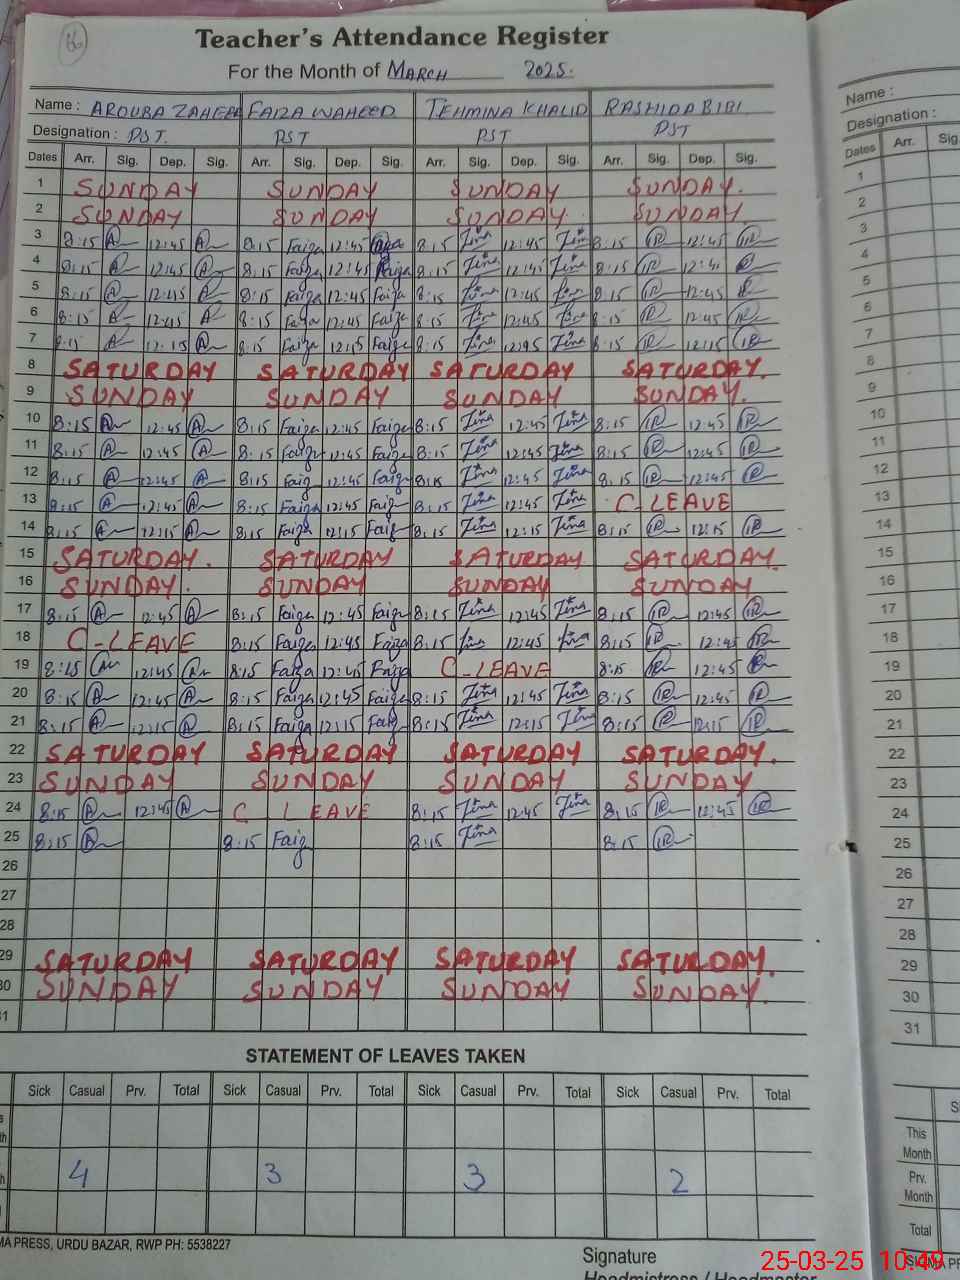 16
Teacher's Attendance Register
For the Month of MARCH 2025.
Name : AROUBA ZAHEER FAIZA WAHEED TEHMINA KHALID RASHIDA BIBI
Designation : PST. PST PST PST
Dates Arr. Sig. Dep. Sig. Arr. Sig. Dep. Sig. Arr. Sig. Dep. Sig. Arr. Sig. Dep. Sig.
1 SUNDAY SUNDAY SUNDAY SUNDAY.
2 SUNDAY SUNDAY SUNDAY. SUNDAY.
3 8:15 A 12:45 A 8:15 Faiza 12:45 Faiza 8:15 12:45 8:15 R 12:45 R
4 8:15 A 12:45 A 8:15 Faiza 12:45 Faiza 8:15 12:45 8:15 R 12:45 R
5 8:15 A 12:45 A 8:15 Faiza 12:45 Faiza 8:15 12:45 8:15 R 12:45 R
6 8:15 A 12:45 A 8:15 Faiza 12:45 Faiza 8:15 12:45 8:15 R 12:45 R
7 8:15 A 12:15 A 8:15 Faiza 12:15 Faiza 8:15 8:15 R 12:15 R
8 SATURDAY SATURDAY SATURDAY SATURDAY.
9 SUNDAY SUNDAY SUNDAY SUNDAY.
10 8:15 A 12:45 A 8:15 Faiza 12:45 Faiza 8:15 12:45 8:15 R 12:45 R
11 8:15 A 12:45 A 8:15 Faiza 12:45 Faiza 8:15 12:45 8:15 R 12:45 R
12 8:15 A 12:45 A 8:15 Faiza 12:45 Faiza 8:15 12:45 8:15 R 12:45 R
13 8:15 A 12:45 A 8:15 Faiza 12:45 Faiza 8:15 12:45 C-LEAVE
14 8:15 A 12:15 A 8:15 Faiza 12:15 Faiza 8:15 12:15 8:15 R 12:15 R
15 SATURDAY. SATURDAY SATURDAY SATURDAY.
16 SUNDAY. SUNDAY SUNDAY SUNDAY
17 8:15 A 12:45 A 8:15 Faiza 12:45 Faiza 8:15 12:45 8:15 R 12:45 R
18 C-LEAVE 8:15 Faiza 12:45 Faiza 8:15 12:45 8:15 R 12:45 R
19 8:15 A 12:45 A 8:15 Faiza 12:45 Faiza C-LEAVE 8:15 R 12:45 R
20 8:15 A 12:45 A 8:15 Faiza 12:45 Faiza 8:15 12:45 8:15 R 12:45 R
21 8:15 A 12:15 A 8:15 Faiza 12:15 Faiza 8:15 12:15 8:15 R 12:15 R
22 SATURDAY SATURDAY SATURDAY SATURDAY.
23 SUNDAY SUNDAY SUNDAY SUNDAY
24 8:15 A 12:45 A C LEAVE 8:15 12:45 8:15 R 12:45 R
25 8:15 A 8:15 Faiza 8:15 8:15 R
26
27
28
29 SATURDAY SATURDAY SATURDAY SATURDAY.
30 SUNDAY SUNDAY SUNDAY SUNDAY.
31
STATEMENT OF LEAVES TAKEN
Sick Casual Prv. Total Sick Casual Prv. Total Sick Casual Prv. Total Sick Casual Prv. Total
4 3 3 2
PRESS, URDU BAZAR, RWP PH: 5538227
Signature
Headmistress / Headmaster
Name :
Designation :
Dates Arr. Sig.
1
2
3
4
5
6
7
8
9
10
11
12
13
14
15
16
17
18
19
20
21
22
23
24
25
26
27
28
29
30
31
This Month
Prv. Month
Total
25-03-25 10:49